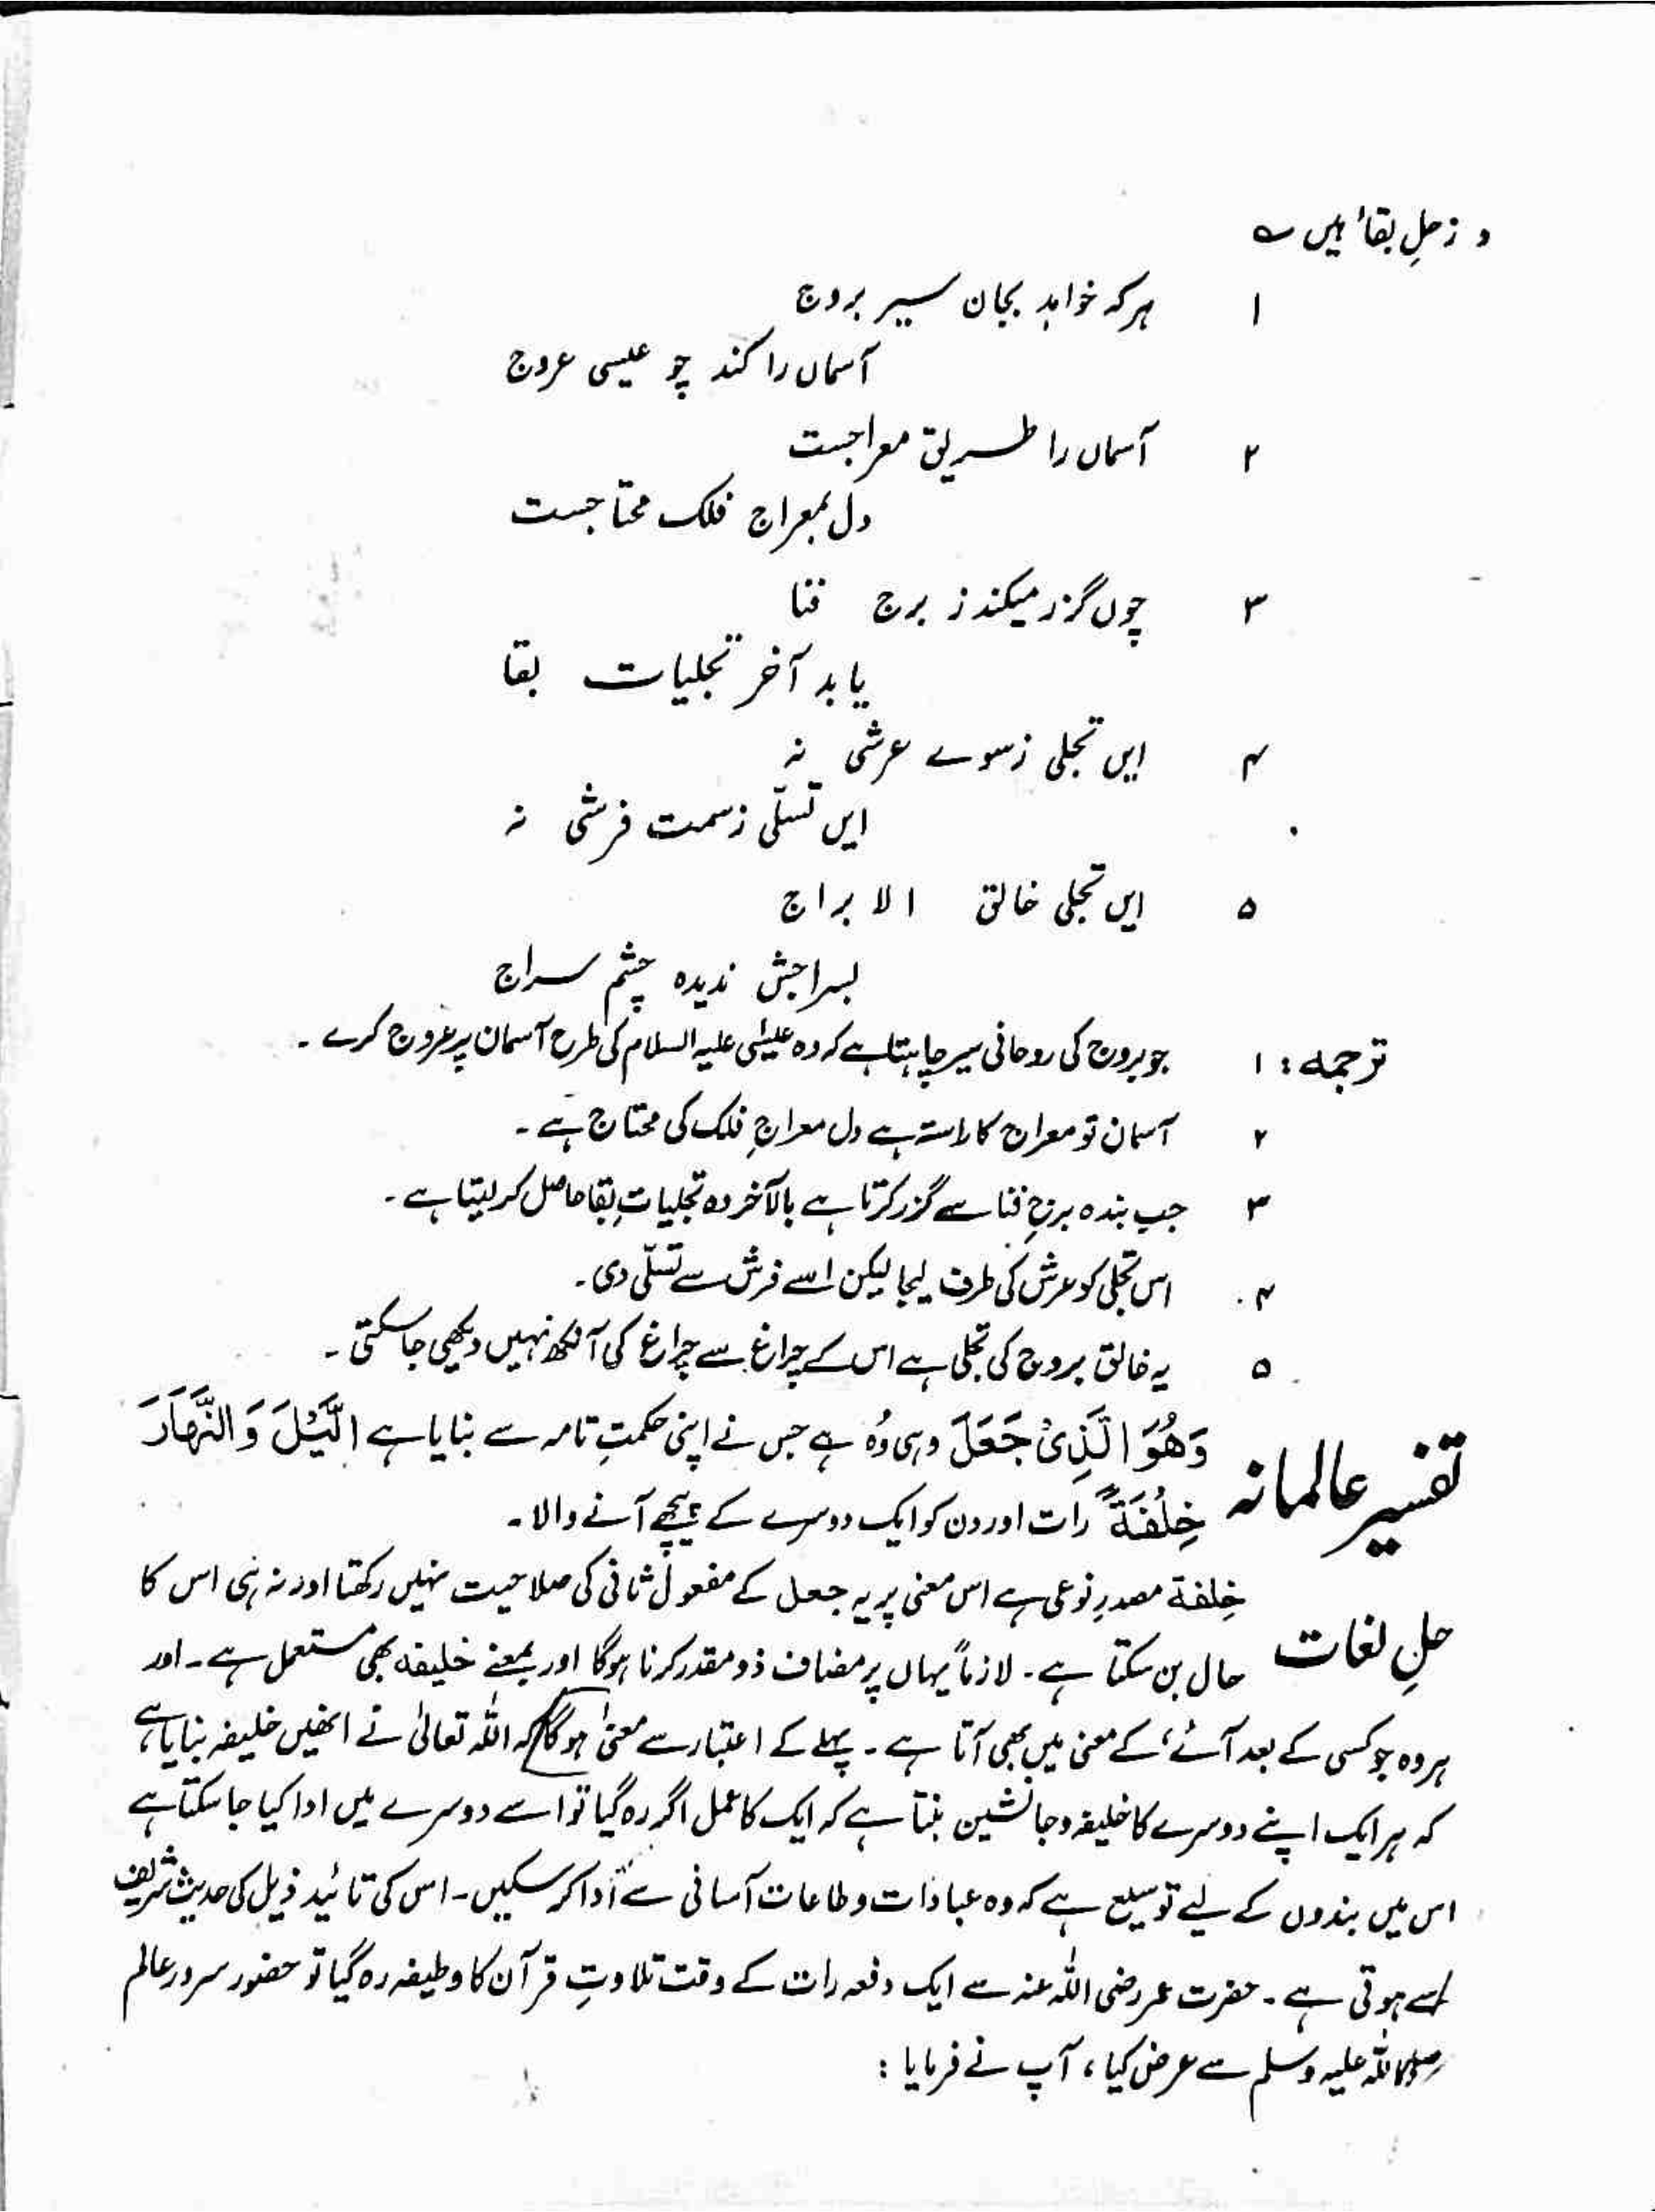 و زحلِ بقاء ہیں ؎
۱ ہر کہ خواہد بجان سیر بروج
آسماں را کند چو عیسی عروج
۲ آسماں را طریق معراجست
دل بمعراج فلک محتاجست
۳ چوں گزر میکند ز برج فنا
یابد آخر تجلیات بقا
۴ ایں تجلی زسوے عرشی نہ
ایں تسلّی زسمت فرشی نہ
۵ ایں تجلی خالق الابراج
بسراجش ندیدہ چشم سراج
ترجمہ : ۱ جو بروج کی روحانی سیر چاہتا ہے کہ وہ عیسٰی علیہ السلام کی طرح آسمان پر عروج کرے ۔
۲ آسمان تو معراج کا راستہ ہے دل معراجِ فلک کی محتاج ہے ۔
۳ جب بندہ برزخِ فنا سے گزر کرتا ہے بالآخر وہ تجلیاتِ بقا حاصل کر لیتا ہے ۔
۴ اس تجلی کو عرش کی طرف لیجا لیکن اسے فرش سے تسلّی دی ۔
۵ یہ خالق بروج کی تجلی ہے اس کے چراغ سے چراغ کی آنکھ نہیں دیکھی جاسکتی ۔
تفسیر عالمانہ وَھُوَ الَّذِیْ جَعَلَ وہی وُہ ہے جس نے اپنی حکمتِ تامہ سے بنایا ہے الَّیْلَ وَالنَّھَارَ
خِلْفَۃً رات اور دن کو ایک دوسرے کے پیچھے آنے والا ۔
حلِ لغات خِلفۃ مصدرِ نوعی ہے اس معنی پر یہ جعل کے مفعول ثانی کی صلاحیت نہیں رکھتا اور نہ ہی اس کا
حال بن سکتا ہے ۔ لازماً یہاں پر مضاف ذو مقدر کرنا ہوگا اور بمعنے خلیفہ بھی مستعمل ہے ۔ اور
ہر وہ جو کسی کے بعد آئے، کے معنی میں بھی آتا ہے ۔ پہلے کے اعتبار سے معنیٰ ہوگا کہ اللہ تعالیٰ نے انھیں خلیفہ بنایا ہے
کہ ہر ایک اپنے دوسرے کا خلیفہ و جانشین بنتا ہے کہ ایک کا عمل اگر رہ گیا تو اسے دوسرے میں ادا کیا جاسکتا ہے
اس میں بندوں کے لیے توسیع ہے کہ وہ عبادات و طاعات آسانی سے ادا کر سکیں ۔ اس کی تائید ذیل کی حدیث شریف
سے ہوتی ہے ۔ حضرت عمر رضی اللہ عنہ سے ایک دفعہ رات کے وقت تلاوتِ قرآن کا وظیفہ رہ گیا تو حضور سرور عالم
صلی اللہ علیہ وسلم سے عرض کیا ، آپ نے فرمایا :